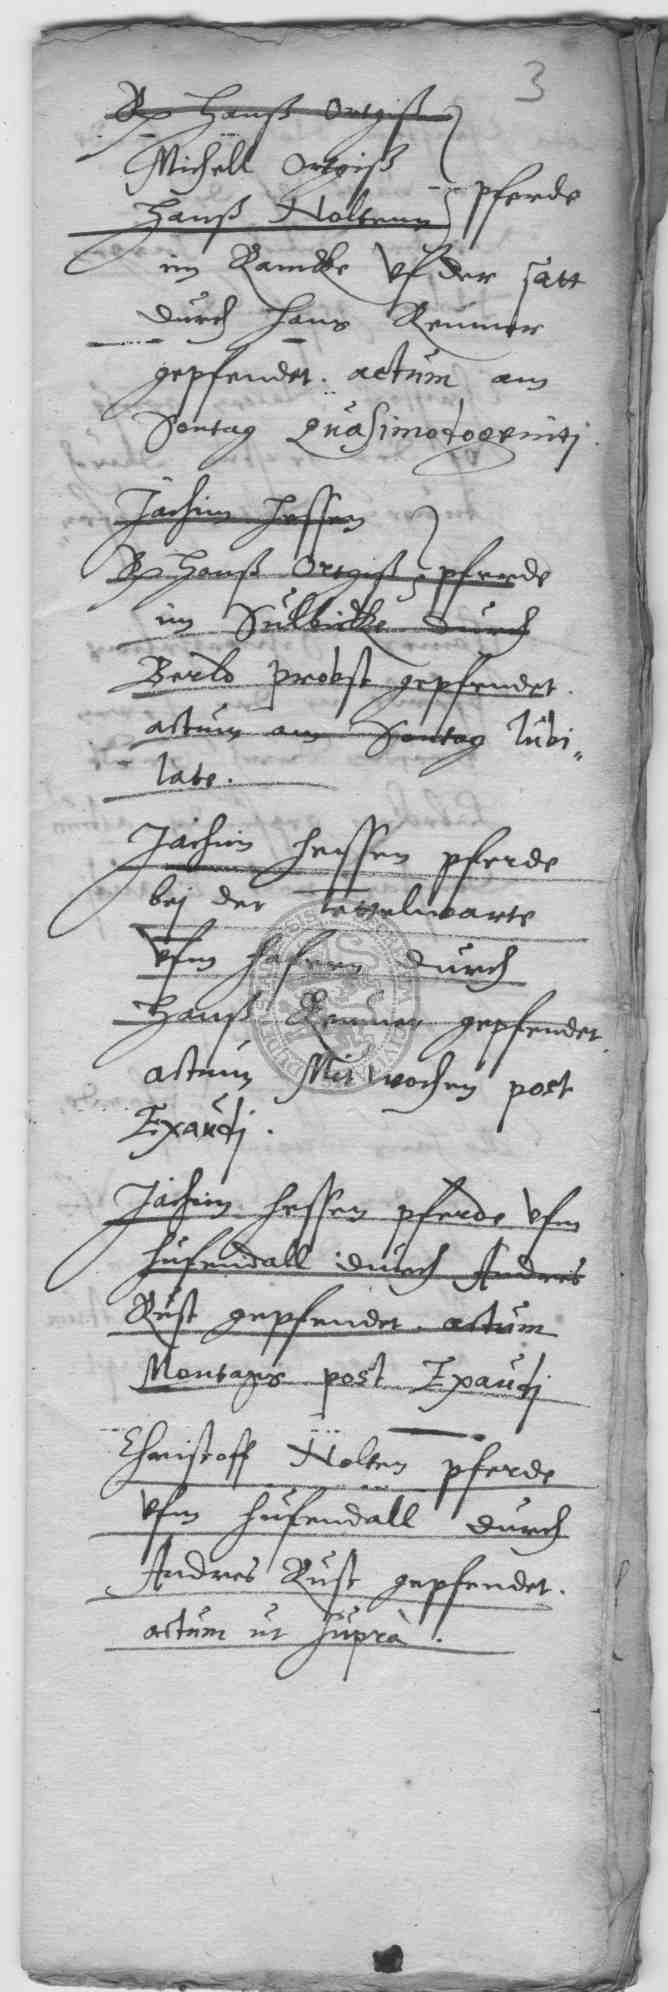 3
Rp Hanß Ortgiß
Michell Ortgiß
Hanß Nolten pferde
im Kamcke vf der satt
durch Hans Reumer
gepfendet. actum am
Sontag Quasimodogeniti.
Jachim Hessen
Rp Hanß Ortgiß pferde
im Sulbicke durch
Berld Probst gepfendet.
actum am Sontag Jubi„
late.
Jachim Hessen pferde
bej der Tettelwarte
vfm hafern durch
Hanß Reumer gepfendet.
actum Mitwochen post
Exaudj.
Jachim Hessen pferde vfm
hufendall durch Andres
Rust gepfendet. actum
Montags post Exaudj
Christoff Nolten pferde
vfm hufendall durch
Andres Rust gepfendet.
actum ut supra.